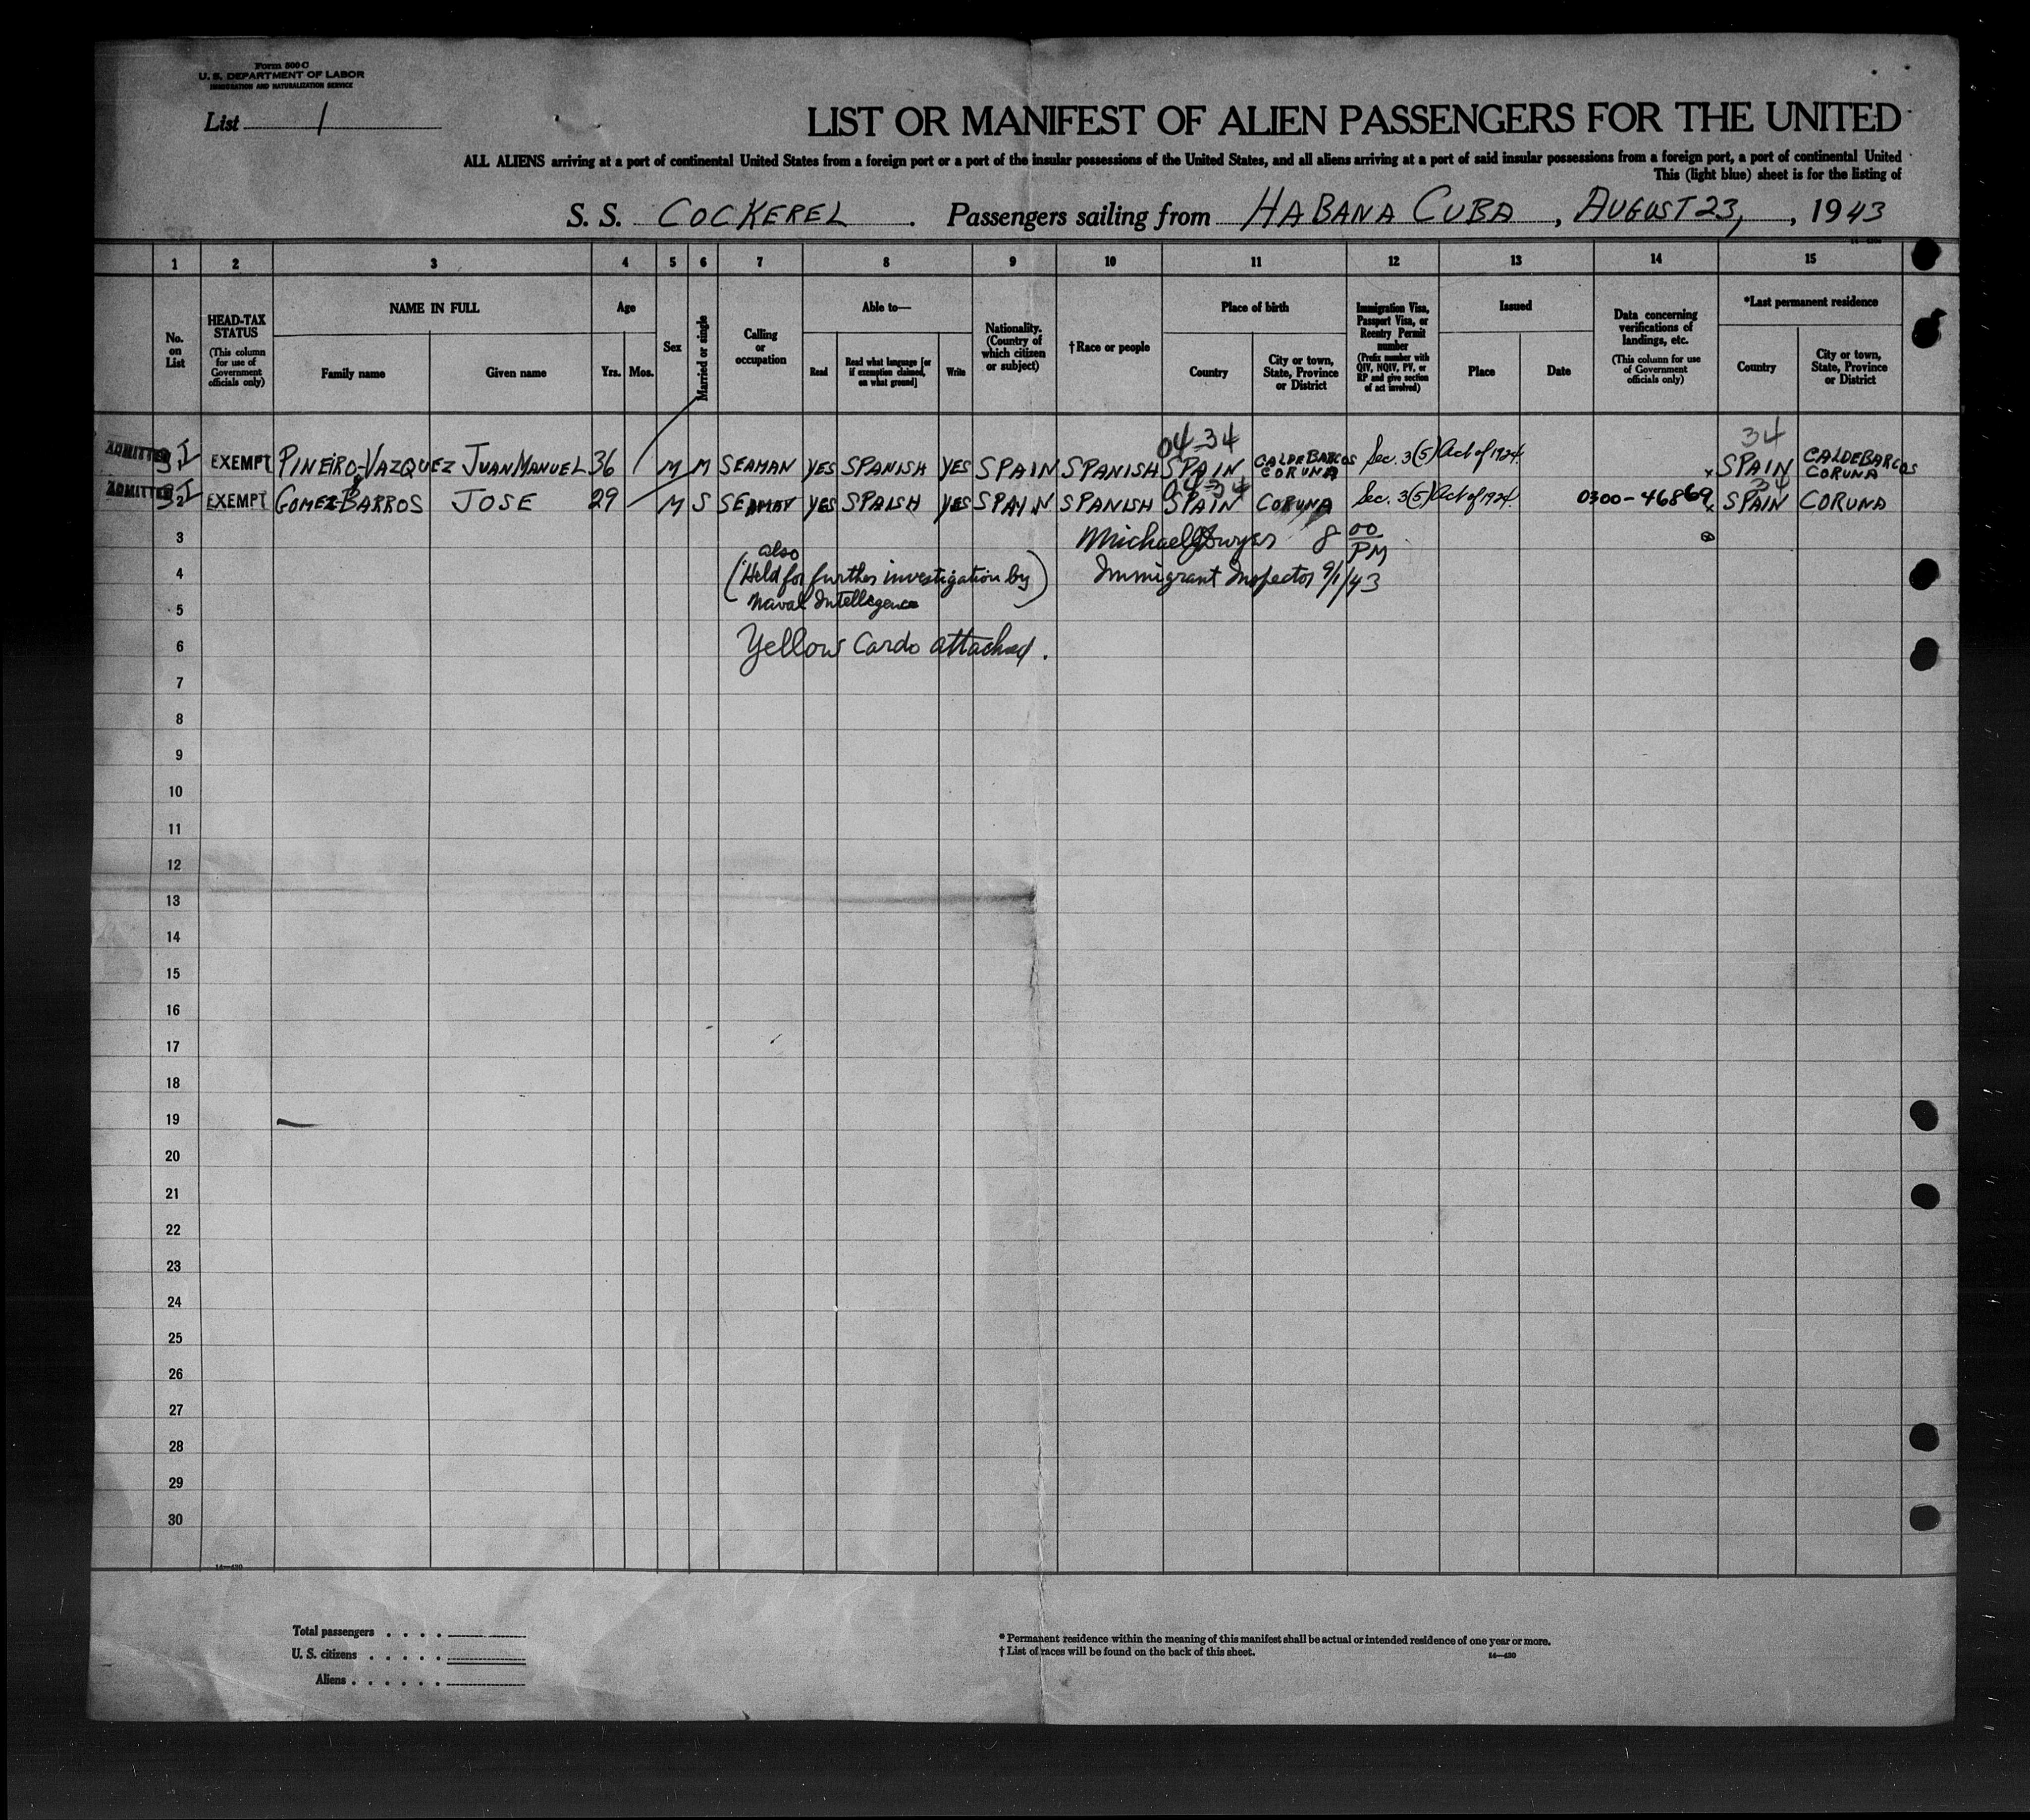 Form 500 C
U. S. DEPARTMENT OF LABOR
IMMIGRATION AND NATURALIZATION SERVICE
List 1
LIST OR MANIFEST OF ALIEN PASSENGERS FOR THE UNITED
ALL ALIENS arriving at a port of continental United States from a foreign port or a port of the insular possessions of the United States, and all aliens arriving at a port of said insular possessions from a foreign port, a port of continental United
This (light blue) sheet is for the listing of
S. S. COCKEREL . Passengers sailing from HABANA CUBA , AUGUST 23, , 1943
1 2 3 4 5 6 7 8 9 10 11 12 13 14 15
No. on List
HEAD-TAX STATUS (This column for use of Government officials only)
NAME IN FULL
Family name
Given name
Age
Yrs. Mos.
Sex
Married or single
Calling or occupation
Able to—
Read
Read what language [or if exemption claimed, on what ground]
Write
Nationality. (Country of which citizen or subject)
†Race or people
Place of birth
Country
City or town, State, Province or District
Immigration Visa, Passport Visa, or Reentry Permit number (Prefix number with QIV, NQIV, PV, or RP and give section of act involved)
Issued
Place
Date
Data concerning verifications of landings, etc. (This column for use of Government officials only)
*Last permanent residence
Country
City or town, State, Province or District
04-34 34
ADMITTED EXEMPT PINEIRO-VAZQUEZ JUAN MANUEL 36 M M SEAMAN YES SPANISH YES SPAIN SPANISH SPAIN CALDEBARCOS CORUNA Sec. 3(5) Act of 1924. x SPAIN CALDEBARCOS CORUNA
04-34 34
ADMITTED EXEMPT GOMEZ-BARROS JOSE 29 M S SEAMAN YES SPAISH YES SPAIN SPANISH SPAIN CORUNA Sec. 3(5) Act of 1924. 0300-46869 x SPAIN CORUNA
3 Michael 8 00 PM
also
4 (Held for further investigation by) Immigrant Inspector 9/1/43
5 Naval Intellegence
6 Yellow Cards attached.
7
8
9
10
11
12
13
14
15
16
17
18
19
20
21
22
23
24
25
26
27
28
29
30
14—430
Total passengers . . . .
U. S. citizens . . . . .
Aliens . . . . . .
* Permanent residence within the meaning of this manifest shall be actual or intended residence of one year or more.
† List of races will be found on the back of this sheet.
14—430